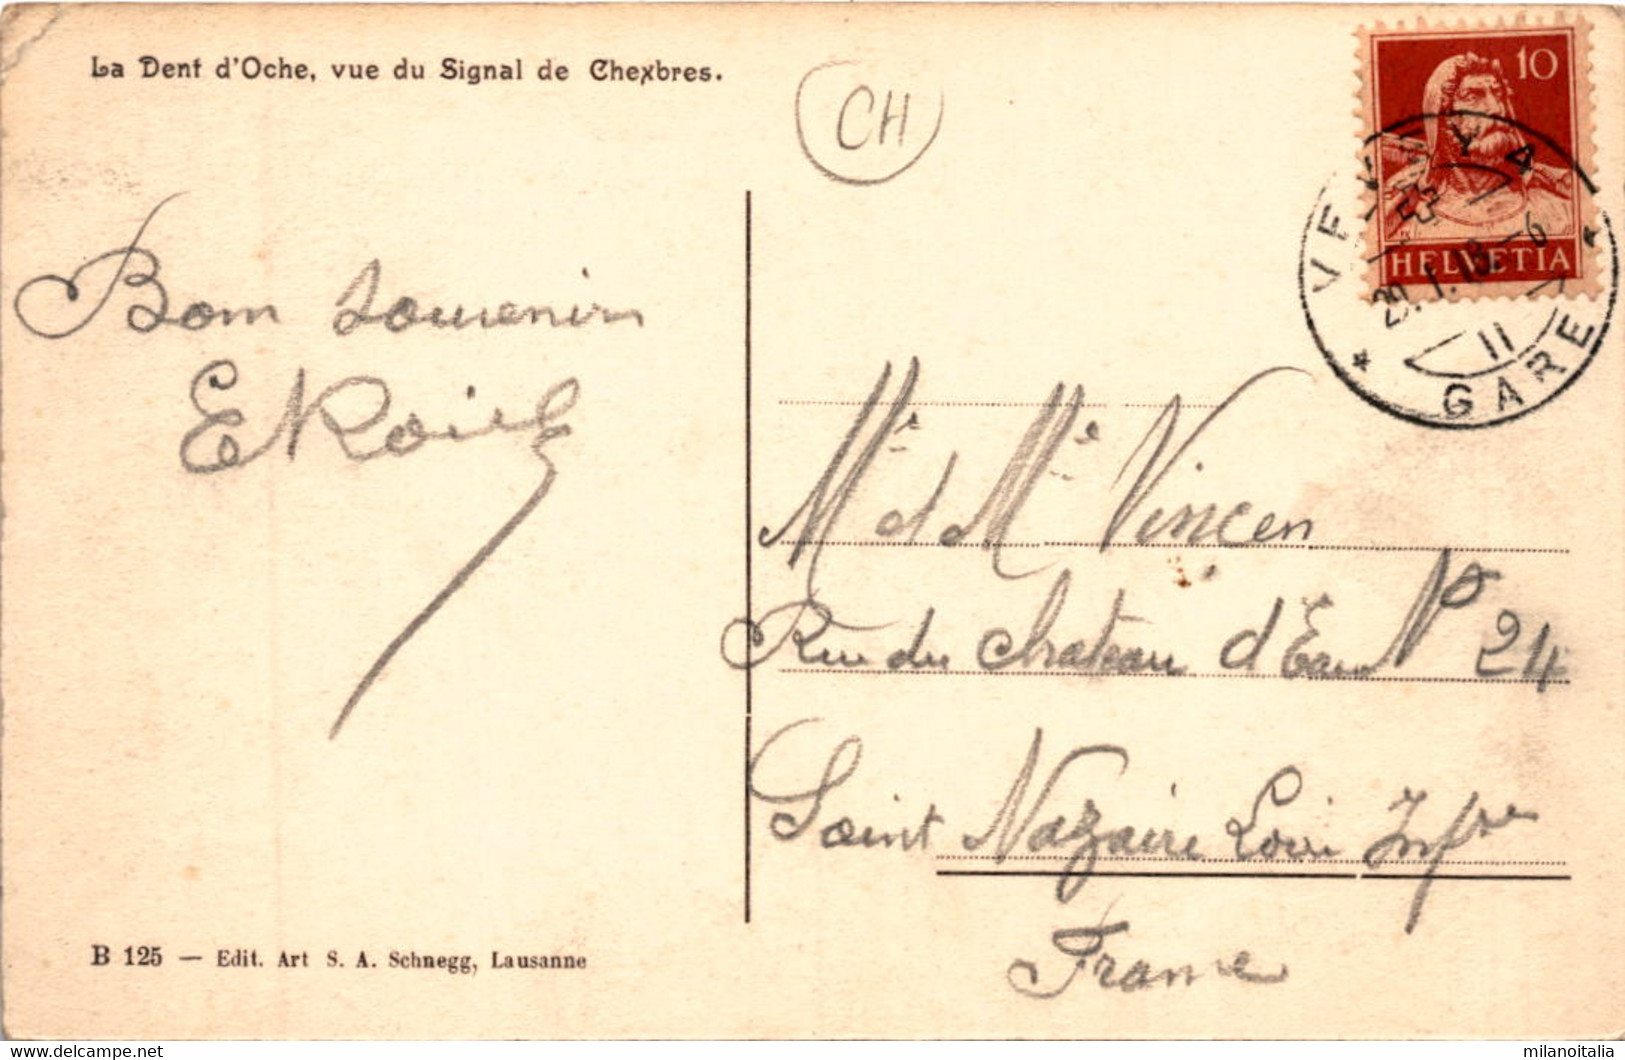 La Dent d'Oche, vue du Signal de Chexbres.
CH
10
HELVETIA
VEVEY
29. I. 18. - 6
II
GARE
Bon souvenir
Mr et Me Vincen
Rue du Chateau d'Eau No 24
Saint Nazaire Loire Infre
France
B 125 — Edit. Art S. A. Schnegg, Lausanne
milanoitalia